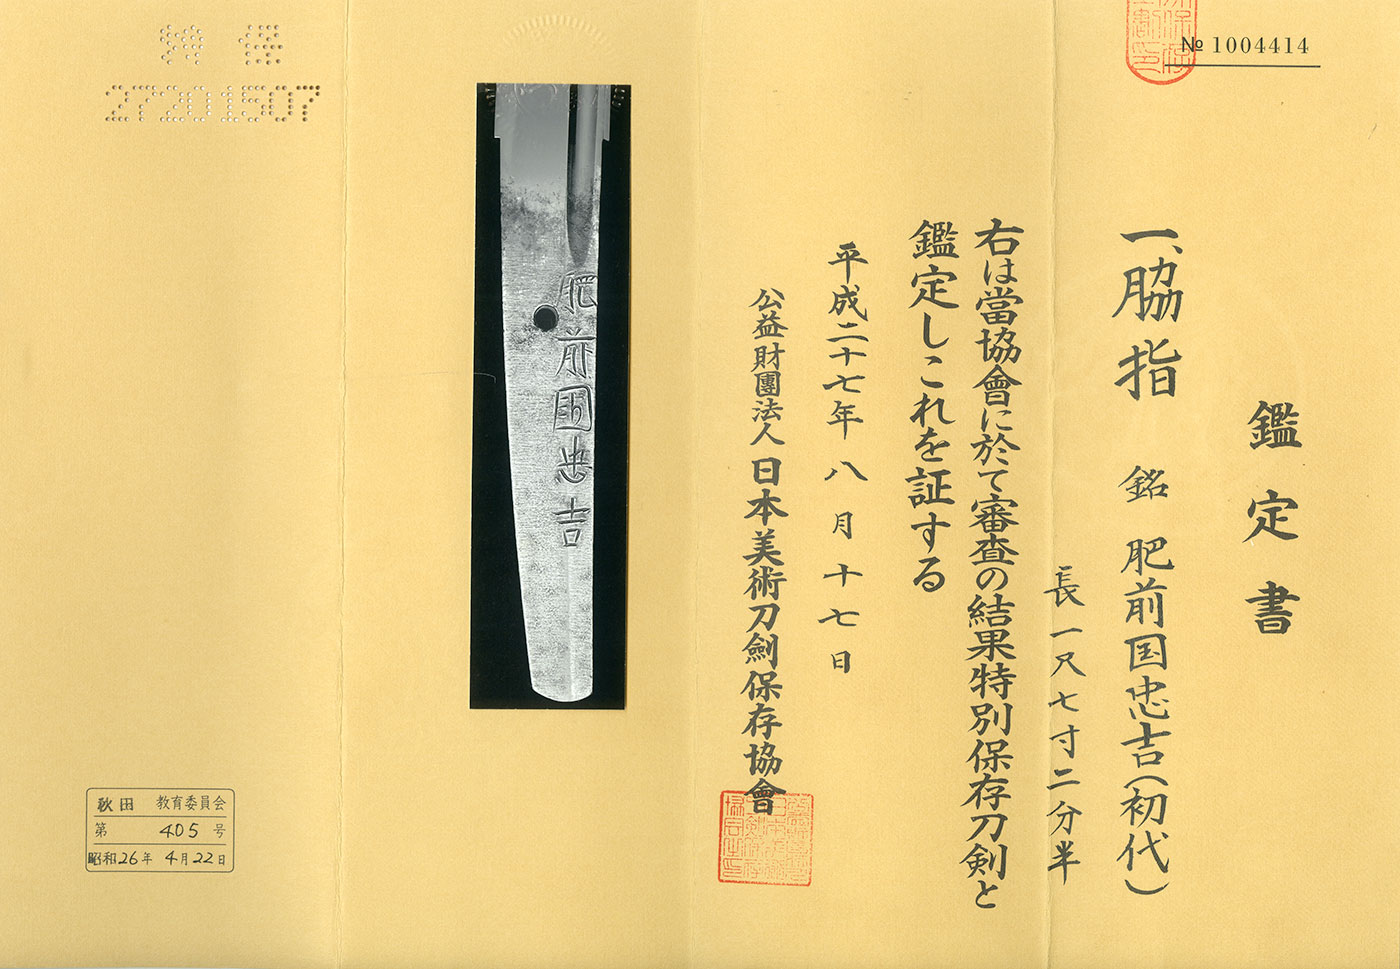 № 1004414
鑑定書
一、脇指 銘 肥前国忠吉(初代)
長一尺七寸二分半
右は當協會に於て審査の結果特別保存刀剣と
鑑定しこれを証する
平成二十七年八月十七日
公益財團法人日本美術刀劍保存協會
肥前國忠吉
特保
27201507
秋田 教育委員会
第 405 号
昭和26年 4月22日